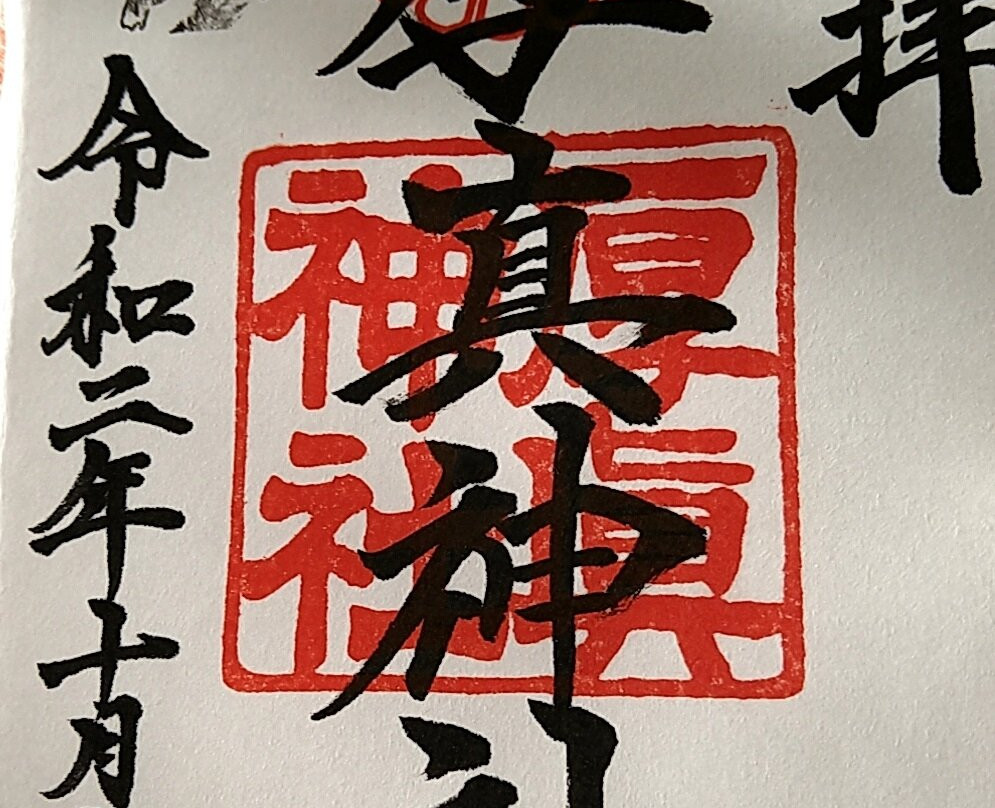 拝
厚真神社
厚真
神社
令和二年十月